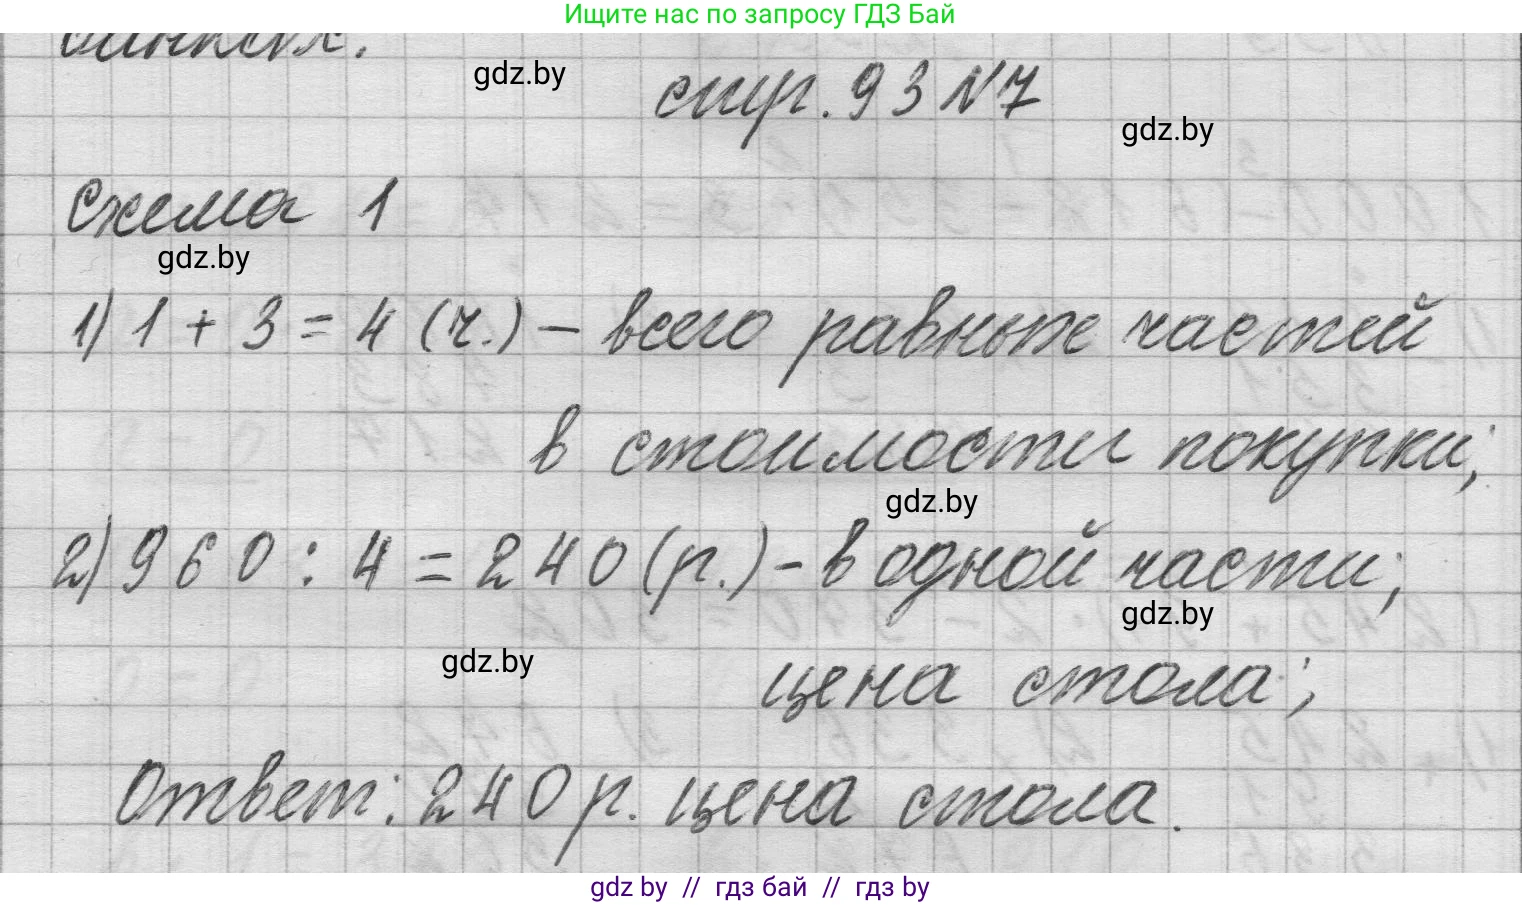 Ищите нас по запросу ГДЗ Бай
банках.
gdz.by
стр. 93 №7
gdz.by
Схема 1
gdz.by
1) 1 + 3 = 4 (ч.) – всего равных частей
в стоимости покупки;
gdz.by
2) 960 : 4 = 240 (р.) – в одной части;
gdz.by
gdz.by
цена стола;
Ответ: 240 р. цена стола.
gdz by // гдз бай // гдз by